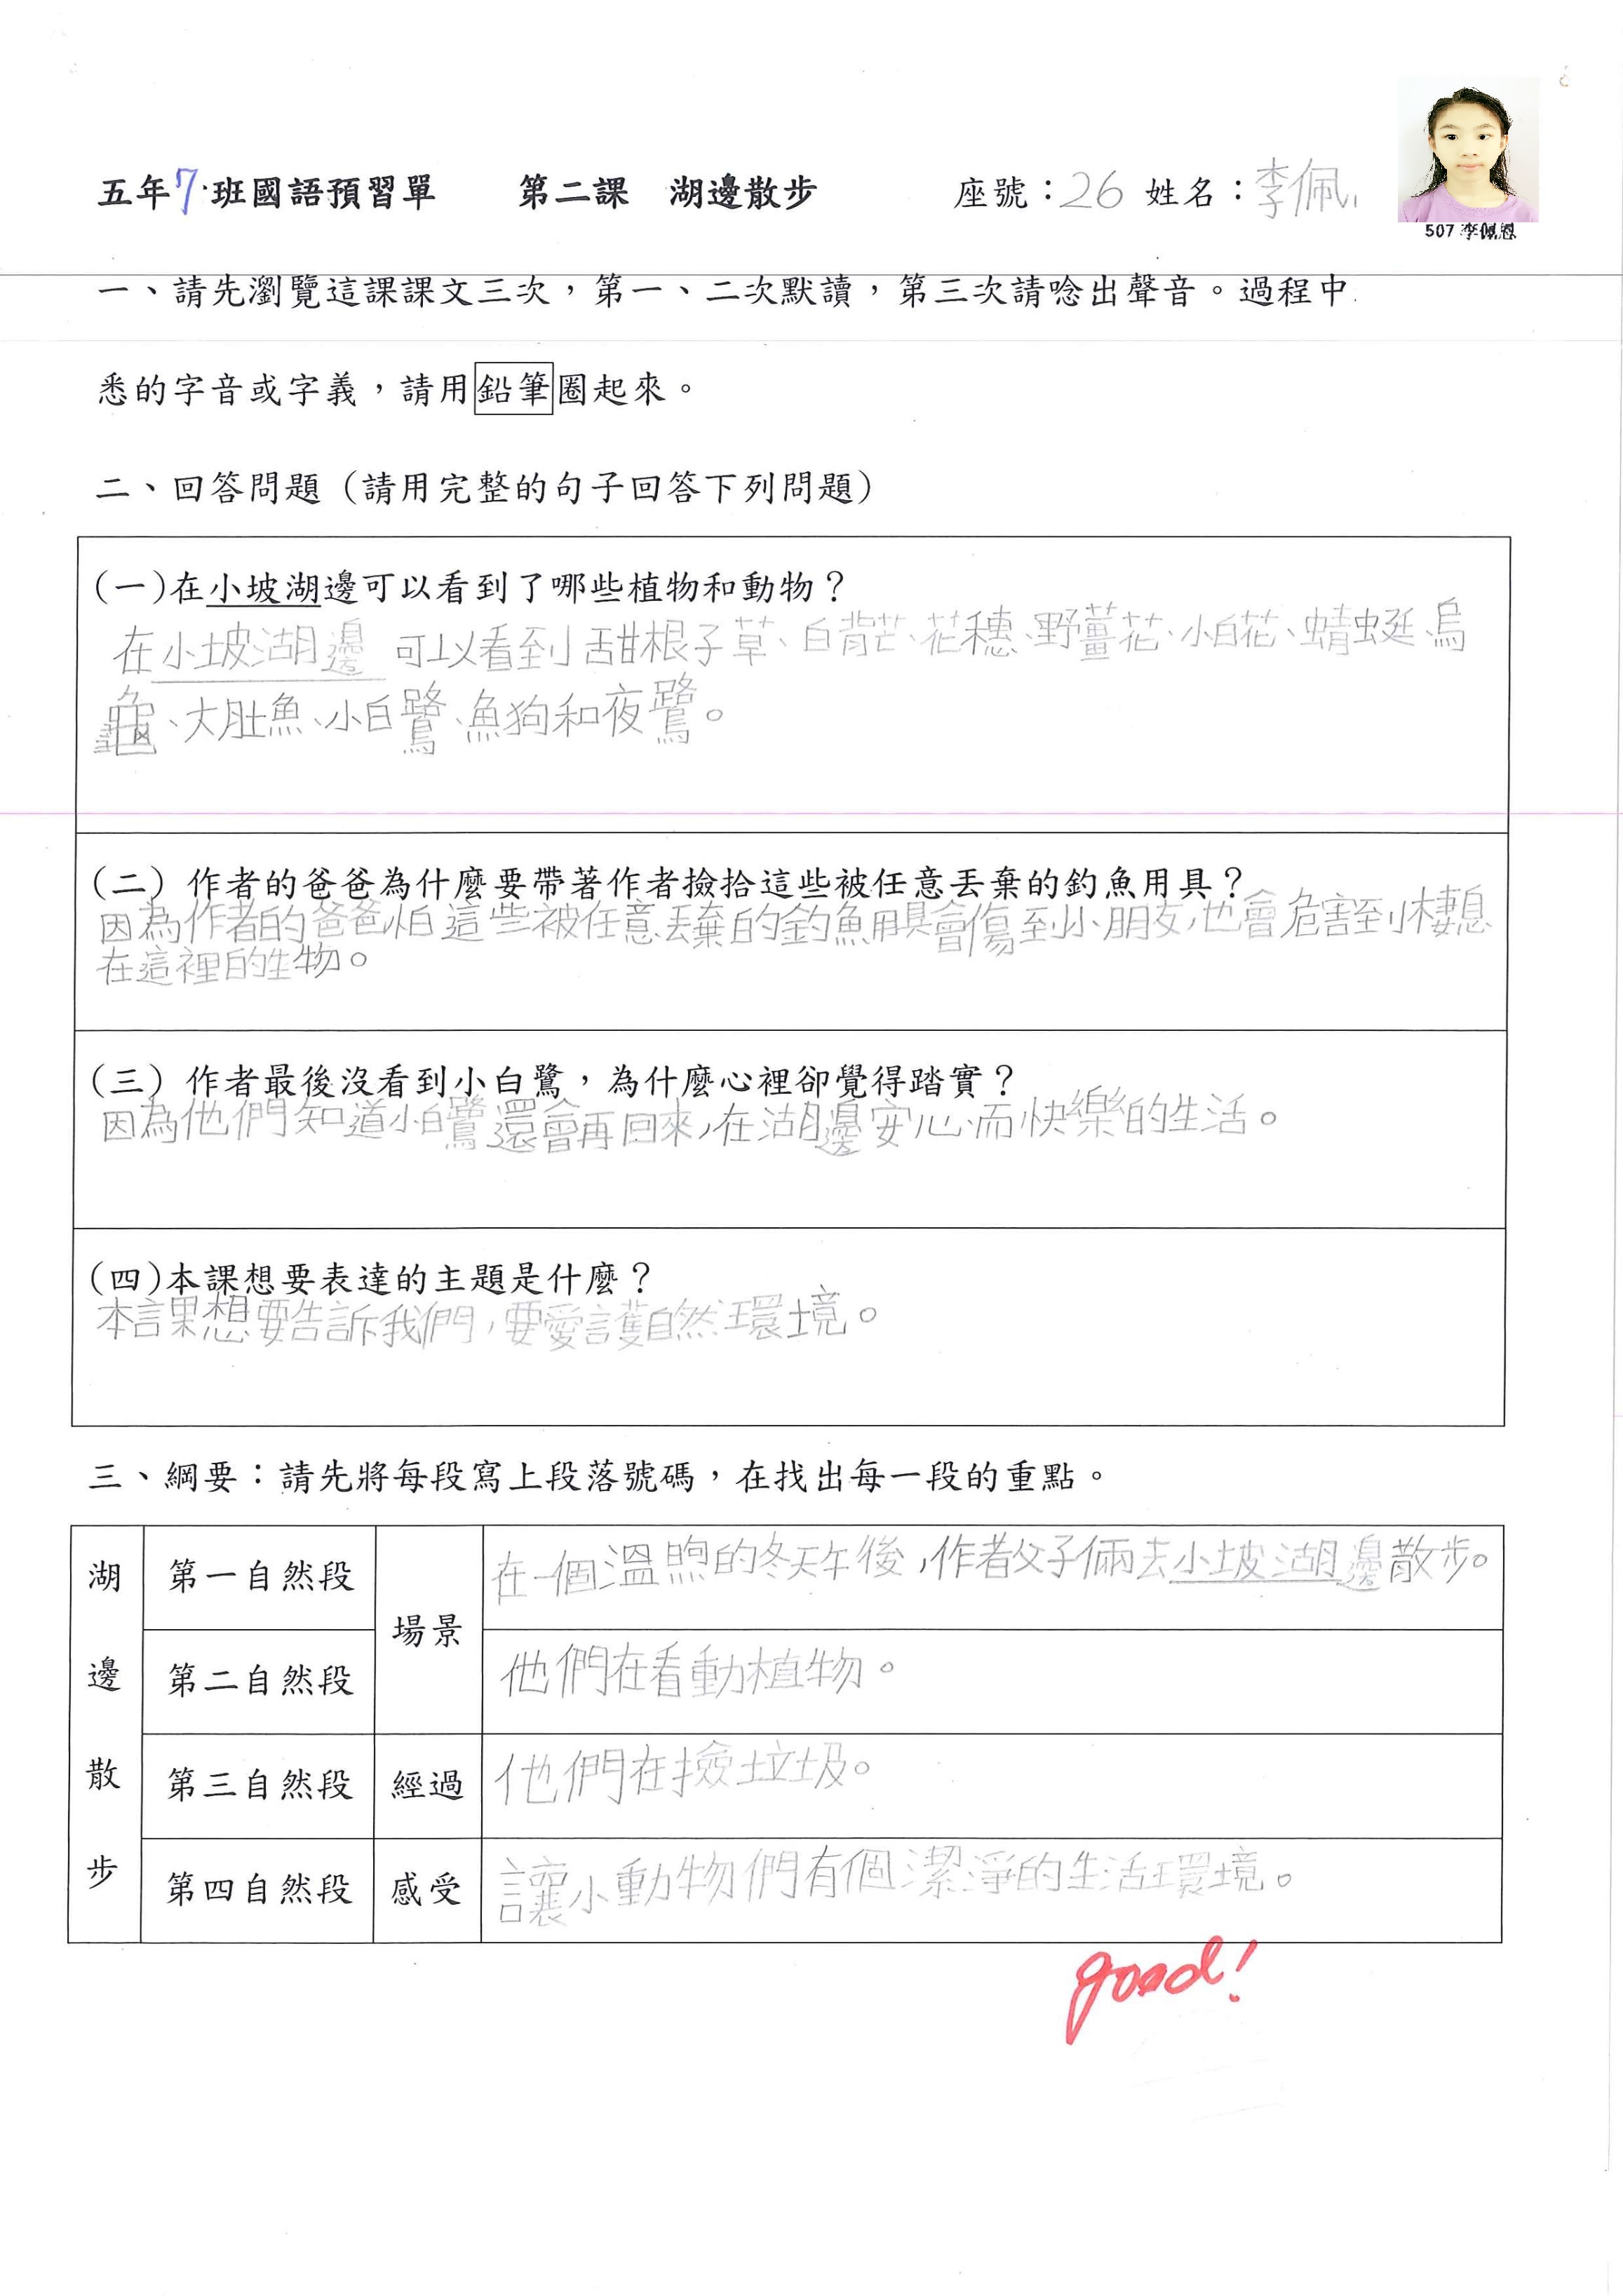 五年7班國語預習單 第二課 湖邊散步 座號：26 姓名：李佩
507 李佩恩
一、請先瀏覽這課課文三次，第一、二次默讀，第三次請唸出聲音。過程中
悉的字音或字義，請用鉛筆圈起來。
二、回答問題（請用完整的句子回答下列問題）
(一)在小坡湖邊可以看到了哪些植物和動物？
在小坡湖邊可以看到甜根子草、白背芒、花穗、野薑花、小白花、蜻蜓、烏
龜、大肚魚、小白鷺、魚狗和夜鷺。
(二) 作者的爸爸為什麼要帶著作者撿拾這些被任意丟棄的釣魚用具？
因為作者的爸爸怕這些被任意丟棄的釣魚用具會傷到小朋友，也會危害到棲息
在這裡的生物。
(三) 作者最後沒看到小白鷺，為什麼心裡卻覺得踏實？
因為他們知道小白鷺還會再回來，在湖邊安心而快樂的生活。
(四)本課想要表達的主題是什麼？
本課想要告訴我們，要愛護自然環境。
三、綱要：請先將每段寫上段落號碼，在找出每一段的重點。
湖邊散步
第一自然段 場景 在一個溫煦的冬天午後，作者父子倆去小坡湖邊散步。
第二自然段 他們在看動植物。
第三自然段 經過 他們在撿垃圾。
第四自然段 感受 讓小動物們有個潔淨的生活環境。
good!